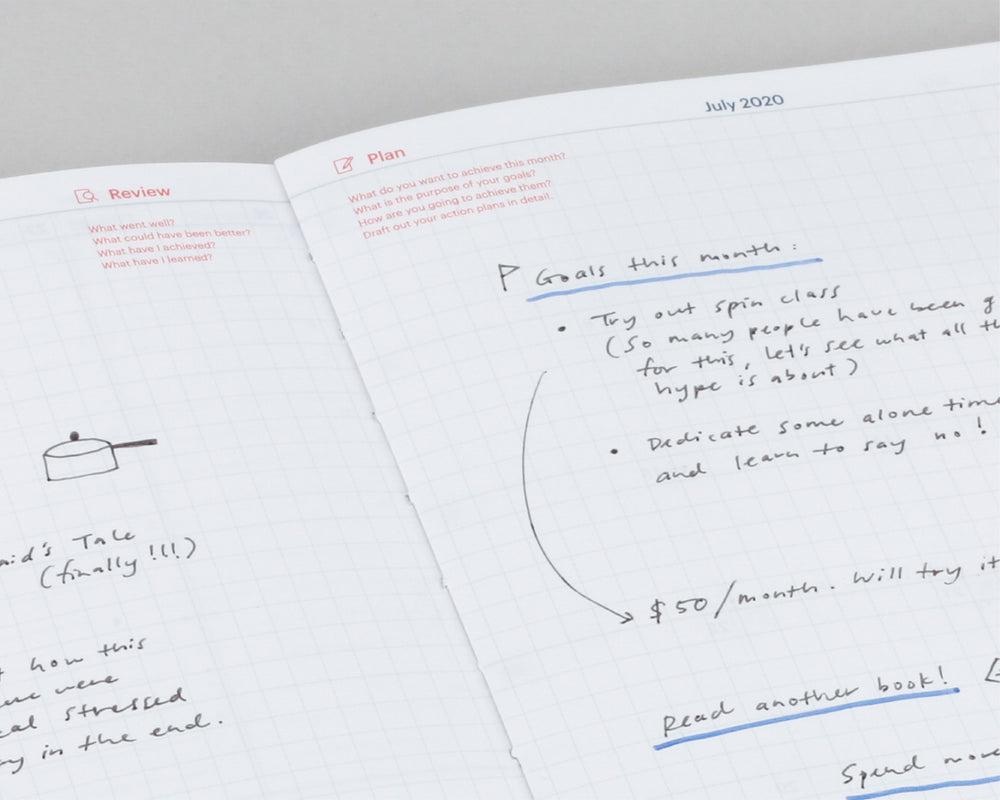 Review
What went well?
What could have been better?
What have I achieved?
What have I learned?
Tale
(finally!!!)
how this
were
stressed
in the end.
July 2020
Plan
What do you want to achieve this month?
What is the purpose of your goals?
How are you going to achieve them?
Draft out your action plans in detail.
Goals this month:
• Try out spin class
(So many people have been
for this, let's see what all
hype is about)
• Dedicate some alone time
and learn to say no!
$50/month. Will try it
Read another book!
Spend more